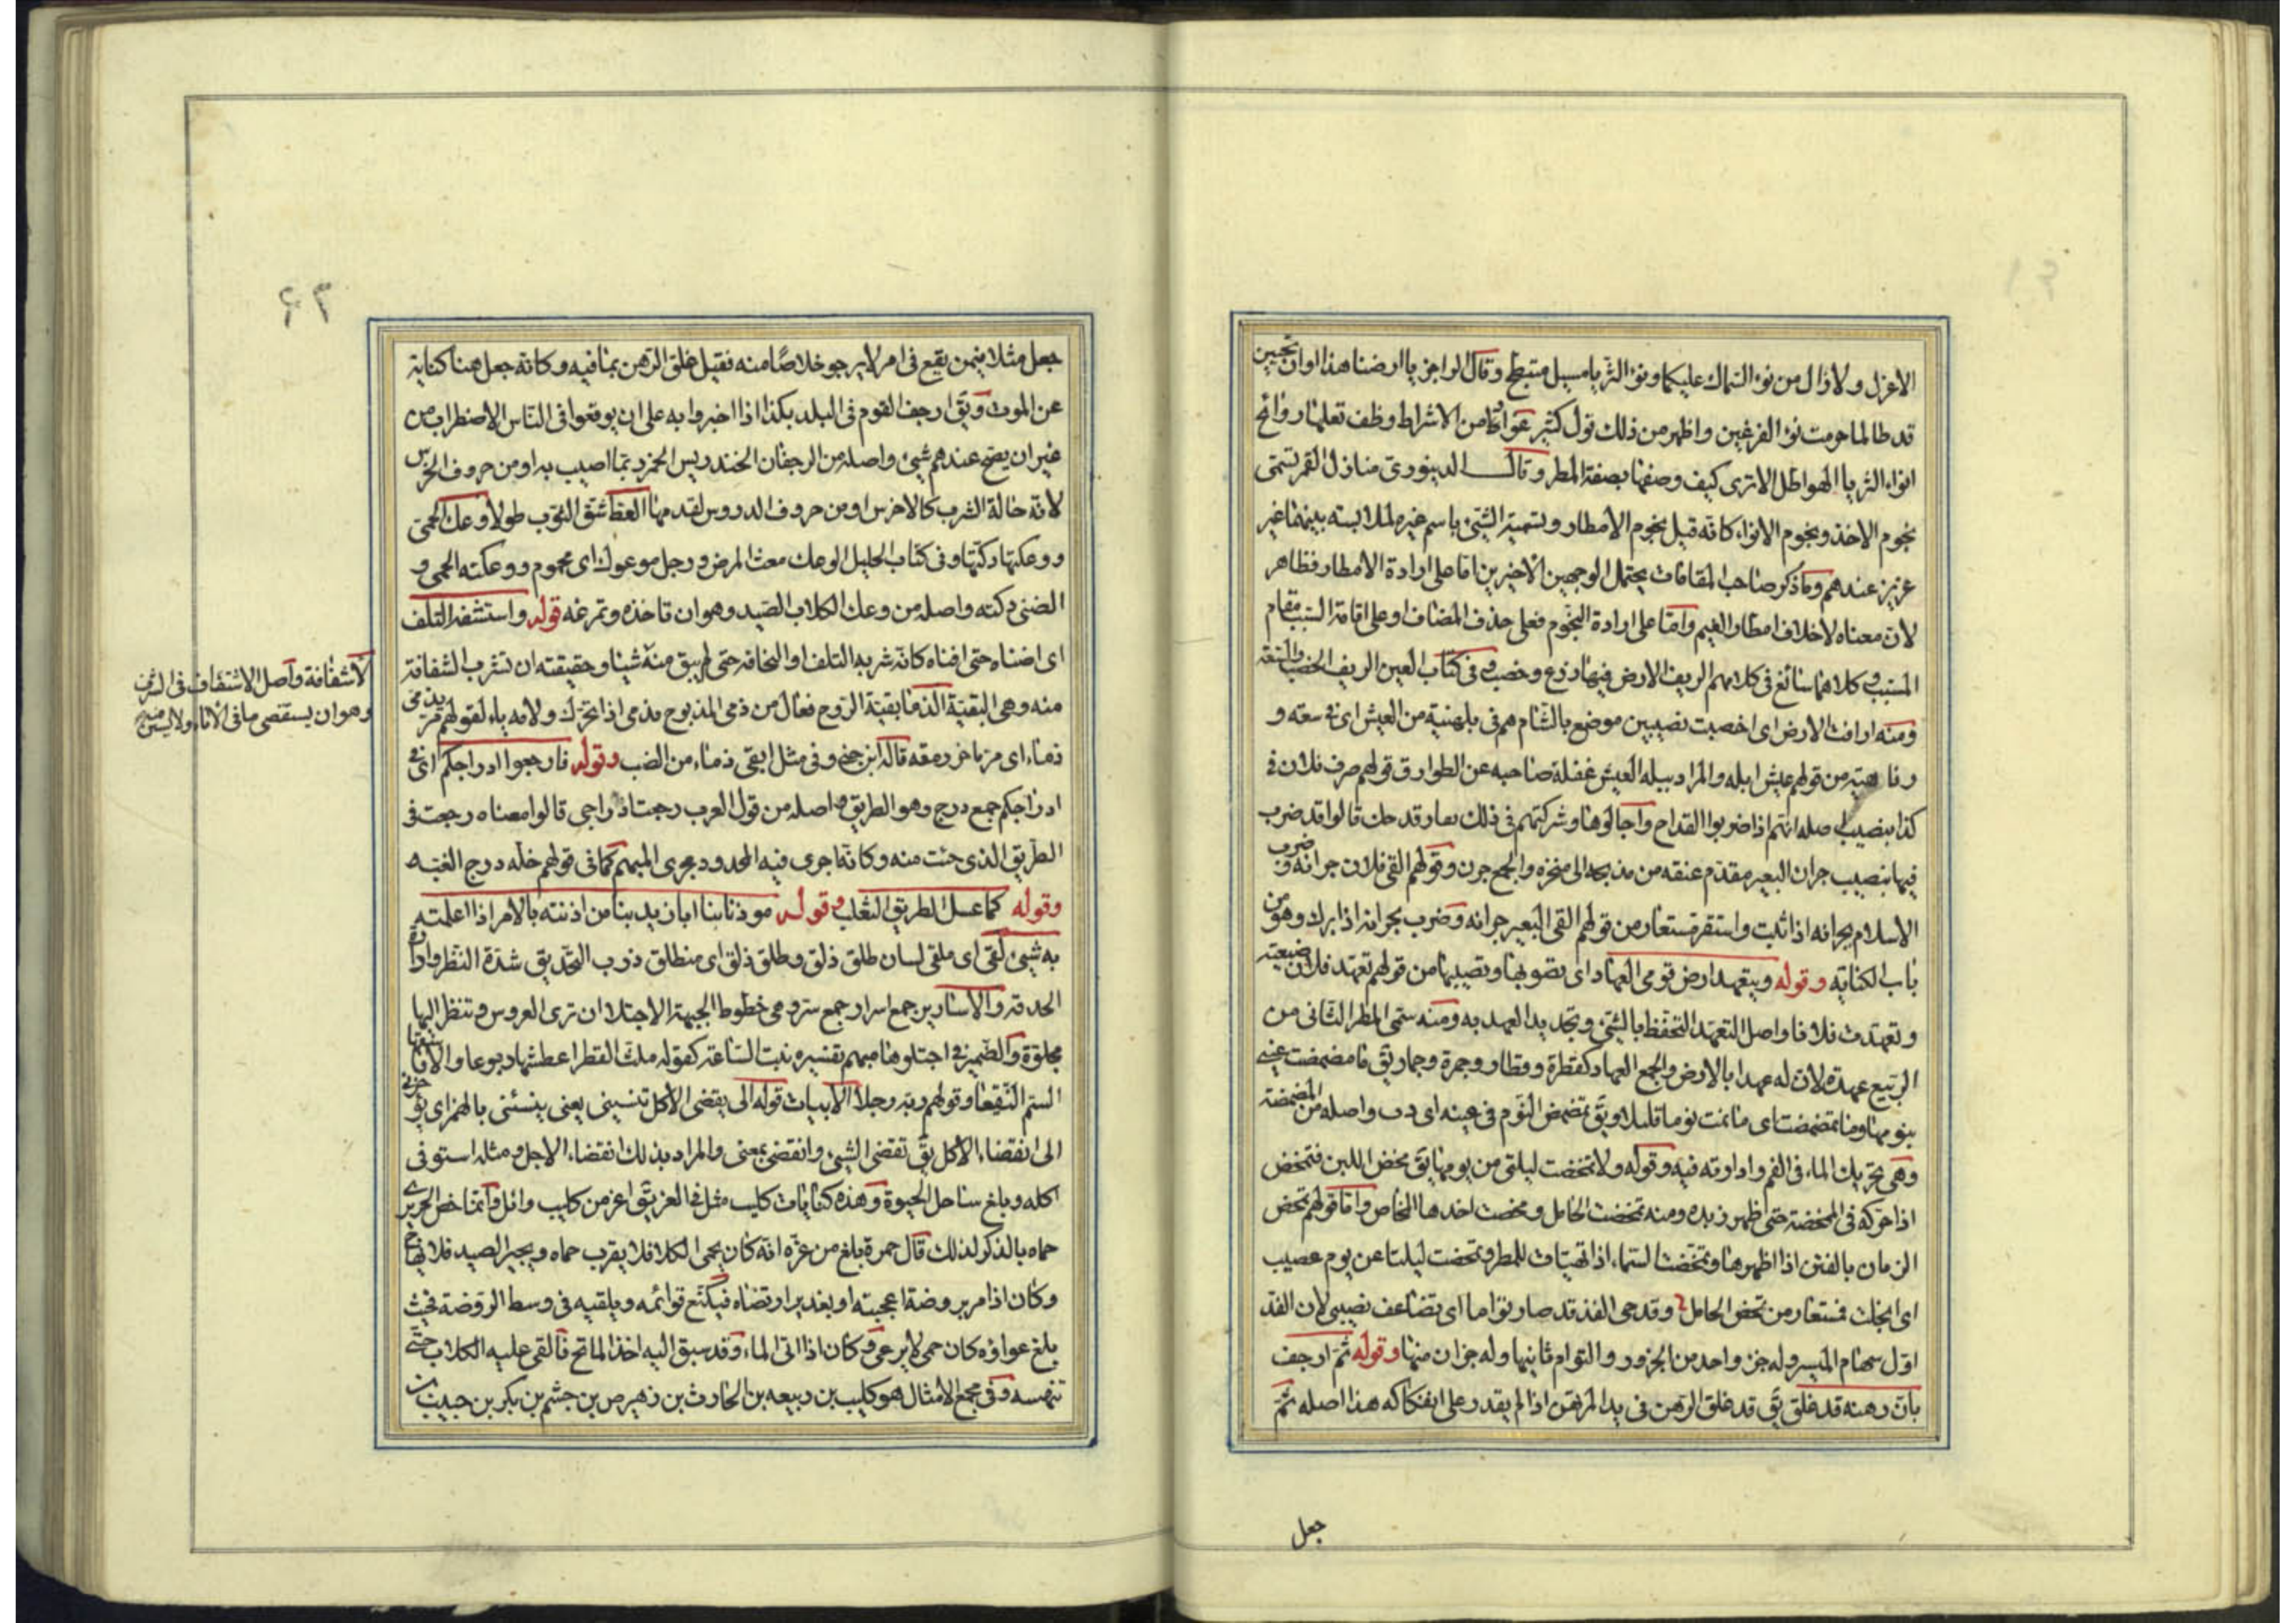 الاعزل ولا زال من نوء السماك عليكما ونوء الثريا مسبل متبطح وقال الراجز يا ارضنا هذا اوان تحيين
قد طالما حرمت نوء الفرغين واظهر من ذلك قول كثير عوامن الاشراط وظف تعلها روائح
انواء الثريا الهواطل الا ترى كيف وصفها بصفة المطر وقال الدينوري منازل القمر تسمى
نجوم الاخذ ونجوم الانواء كانه قيل نجوم الامطار وتسمية الشئ باسم غيره لملابسته بينهما غير
عزيز عندهم وما ذكر صاحب المقامات يحتمل الوجهين الاخيرين اما على ارادة الامطار فظاهر
لان معناه لاخلاف امطار الغيم واما على ارادة النجوم فعلى حذف المضاف او على اقامة السبب مقام
المسبب وكلاهما سائغ في كلامهم الريف الارض فيها زرع وخصب وفي كتاب العين الريف الخصب والسعة
ومنه ارافت الارض اى اخصبت نصيبين موضع بالشام هم في بلهنية من العيش اى في سعة و
رفاهية من قولهم عيش ابله والمراد ببله العيش غفلة صاحبه عن الطوارق قولهم ضرف فلان في
كذا بنصيب اصله انهم اذا ضربوا القداح واجالوها وشركتهم في ذلك بعار قد حك قالوا قد ضرب
فيها بنصيب جران البعير مقدم عنقه من مذبحه الى منخره والجمع جرن وقولهم القى فلان جرانه وضرب
الاسلام بجرانه اذا ثبت واستقر مستعار من قولهم القى البعير جرانه وضرب بجرانه اذا برك وهو من
باب الكناية وقوله ويتعهد ارض قومى العهاد اى يصوبها ويصيبها من قولهم تعهد فلان ضيعته
وتعهدت فلانا واصل التعهد التحفظ بالشئ وتجديد العهد به ومنه سمى المطر الثانى من
الربيع عهدة لان له عهدا بالارض والجمع العهاد كقطرة وقطار وجمرة وجمار يق ما مضمضت عينى
بنومها وما تمضمضت اى ما نمت نوما قليلا ويق تمضمض النوم في عينه اى دب واصله من المضمضة
وهى تحريك الماء في الفم وادارته فيه وقوله ولا تمخضت ليلتى من يومها يق مخض اللبن فتمخض
اذا حركه في الممخضة حتى اظهر زبده ومنه تمخضت الحامل ومخضت اخذها المخاض واما قولهم تمخض
الزمان بالفتن اذا اظهرها وتمخضت السماء اذا تهيأت للمطر وتمخضت ليلتنا عن يوم عصيب
اى انجلت فمستعار من تمخض الحامل وقدحى الفذ قد صار توأما اى يضاعف نصيبى لان الفذ
اول سهام الميسر وله جزء واحد من الجزور والتوام ثانيها وله جزان منها وقوله ثم ارجف
بان رهنه قد غلق يق قد غلق الرهن في يد المرتهن اذا لم يقدر على افتكاكه هذا اصله ثم
جعل
۶۳
جعل مثلا فيمن يقع في امر لا يرجو خلاصا منه فقيل غلق الرهن بما فيه وكانه جعل هنا كناية
عن الموت ويق ارجف القوم في البلد بكذا اذا اخبروا به على ان يوقعوا في الناس الاضطراب من
غير ان يصح عندهم شئ واصله من الرجفان الخندريس الخمر ربما اصيب به او من حروف الخرس
لانه حالة الشرب كالاخرس او من حروف الدروس لقدمها العظ شق الثوب طولا وعك الحمى
ووعكتها دكتها وفي كتاب الخليل الوعك مغث المرض ورجل موعوك اى محموم ووعكته الحمى و
الضنى دكته واصله من وعك الكلاب الصيد وهو ان تاخذه وتمرغه قوله واستشفه التلف
اى اضناه حتى افناه كانه شربه التلف او النحافة حتى لم يبق منه شيئا وحقيقته ان تشرب الشفافة
منه وهى البقية الذماء بقية الروح فعال من ذمى المذبوح يذمى اذا تحرك ولامه ياء لقولهم مر يذمى
ذماء اى مر باخر رمقه قاله ابن جنى وفي مثل ابقى ذماء من الضب وقوله فارجعوا ادراجكم اى في
ادراجكم جمع درج وهو الطريق واصله من قول العرب رجعت ادراجى قالوا معناه رجعت في
الطريق الذى جئت منه وكانه اجرى فيه المحدود مجرى المبهم كما في قولهم خله درج الضب
وقوله كما عسل الطريق الثعلب وقوله موذنا بنا ابا زيد بنا من اذنته بالامر اذا اعلمته
به شئ لقى اى ملقى لسان طلق ذلق وطلق ذلق اى منطلق ذرب التحديق شدة النظر وادارة
الحدقة والاسارير جمع اسرار جمع سر وهى خطوط الجبهة الاجتلاء ان ترى العروس وتنظر اليها
مجلوة والضمير في اجتلوها مبهم تفسيره بنت الساعة كقوله ملث القطر اعطشها ربوعا والافاسقها
السم النقيعا وقولهم ربه رجلا الابيات قوله الى تقضى الاكل تنسينى يعنى ينسئنى بالهمز اى يؤخرنى
الى انقضاء الاكل يق تقضى الشئ وانقضى بمعنى والمراد بذلك انقضاء الاجل ومثله استوفى
اكله وبلغ ساحل الحيوة وهذه كنايات كليب مثل في العز يق اعز من كليب وائل وانما خص الحريرى
حماه بالذكر لذلك قال حمرة بلغ من عزه انه كان يحمى الكلا فلا يقرب حماه ويجير الصيد فلا يهاج
وكان اذا مر بروضة اعجبته او بغدير ارتضاه فيكنع قوائمه ويلقيه في وسط الروضة فحيث
بلغ عواؤه كان حمى لا يرعى وكان اذا اتى الماء وقد سبق اليه اخذ الماتح فالقى عليه الكلاب حتى
تنهسه وفي مجمع الامثال هو كليب بن ربيعه بن الحارث بن زهير بن جشم بن بكر بن حبيب
لاشفافة واصل الاشتفاف في الشرب
وهو ان يستقصى ما في الاناء ولا يسئر منه